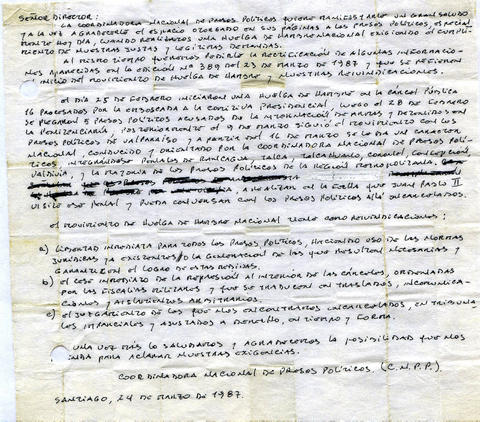 SEÑOR DIRECTOR:
LA COORDINADORA NACIONAL DE PRESOS POLÍTICOS QUIERE MANIFESTARLE UN GRAN SALUDO
Y A LA VEZ AGRADECERLE EL ESPACIO OTORGADO EN SUS PÁGINAS A LOS PRESOS POLÍTICOS, ESPECIAL
MENTE HOY DÍA, CUANDO REALIZAMOS UNA HUELGA DE HAMBRE NACIONAL EXIGIENDO EL CUMPLI
MIENTO DE NUESTRAS JUSTAS Y LEGÍTIMAS DEMANDAS.
AL MISMO TIEMPO QUEREMOS PEDIRLE LA RECTIFICACIÓN DE ALGUNAS INFORMACIO-
NES APARECIDAS EN LA EDICIÓN Nº 389 DEL 23 DE MARZO DE 1987 Y QUE SE REFIEREN
AL INICIO DEL MOVIMIENTO DE HUELGA DE HAMBRE Y NUESTRAS REIVINDICACIONES.
EL DÍA 25 DE FEBRERO INICIARON UNA HUELGA DE HAMBRE EN LA CÁRCEL PÚBLICA
16 PROCESADOS POR LA EMBOSCADA A LA COMITIVA PRESIDENCIAL, LUEGO EL 28 DE FEBRERO
SE PLEGARON 8 PRESOS POLÍTICOS ACUSADOS DE LA INTERNACIÓN DE ARMAS Y DETENIDOS EN
LA PENITENCIARÍA, POSTERIORMENTE EL 9 DE MARZO SIGUIÓ EL MOVIMIENTO CON LOS
PRESOS POLÍTICOS DE VALPARAÍSO Y A PARTIR DEL 16 DE MARZO SE LE DIO UN CARÁCTER
NACIONAL, CONDUCIDO Y ORIENTADO POR LA COORDINADORA NACIONAL DE PRESOS POLÍ-
TICOS, INTEGRÁNDOSE PENALES DE RANCAGUA, TALCA, TALCAHUANO, CORONEL, CONCEPCIÓN,
VALDIVIA, Y LA MAYORÍA DE LOS PRESOS POLÍTICOS DE LA REGIÓN METROPOLITANA.
A REALIZAR EN LA CALLE QUE JUAN PABLO II
VISITE ESE PENAL Y PUEDA CONVERSAR CON LOS PRESOS POLÍTICOS ALLÍ ENCARCELADOS.
EL MOVIMIENTO DE HUELGA DE HAMBRE NACIONAL TIENE COMO REIVINDICACIONES:
a) LIBERTAD INMEDIATA PARA TODOS LOS PRESOS POLÍTICOS, HACIENDO USO DE LAS NORMAS
JURÍDICAS YA EXISTENTES Y/O LA GENERACIÓN DE LAS QUE RESULTEN NECESARIAS Y
GARANTICEN EL LOGRO DE ESTAS MEDIDAS.
b) EL CESE INMEDIATO DE LA REPRESIÓN AL INTERIOR DE LAS CÁRCELES, ORDENADAS
POR LAS FISCALÍAS MILITARES Y QUE SE TRADUCEN EN TRASLADOS, INCOMUNICA-
CIONES Y AISLAMIENTOS ARBITRARIOS.
c) EL JUZGAMIENTO DE LOS QUE NOS ENCONTRAMOS ENCARCELADOS, EN TRIBUNA
LES IMPARCIALES Y AJUSTADOS A DERECHO, EN TIEMPO Y FORMA.
UNA VEZ MÁS LO SALUDAMOS Y AGRADECEMOS LA POSIBILIDAD QUE NOS
BRINDA PARA ACLARAR NUESTRAS EXIGENCIAS.
COORDINADORA NACIONAL DE PRESOS POLÍTICOS. (C.N.P.P.).
SANTIAGO, 24 DE MARZO DE 1987.